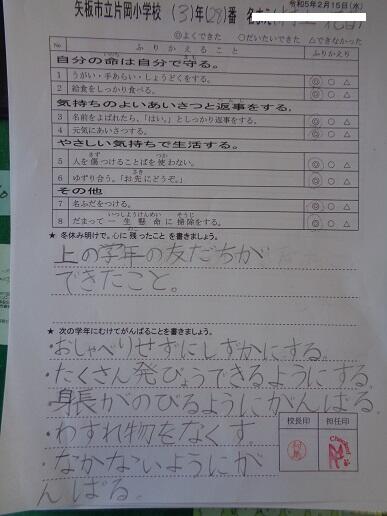 令和5年2月15日(水)
矢板市立片岡小学校 (3)年(28)番 名まえ
◎よくできた ○だいたいできた △できなかった
№ ふりかえること ふりかえり
自分の命は自分で守る。
1 うがい・手あらい・しょうどくをする。 ◎ ○ △
2 給食をしっかり食べる。 ◎ ○ △
気持ちのよいあいさつと返事をする。
3 名前をよばれたら、「はい。」としっかり返事をする。 ◎ ○ △
4 元気にあいさつする。 ◎ ○ △
やさしい気持ちで生活する。
5 人を傷つけることばを使わない。 ◎ ○ △
6 ゆずり合う。「お先にどうぞ。」 ◎ ○ △
その他
7 名ふだをつける。 ◎ ○ △
8 だまって一生懸命に掃除をする。 ◎ ○ △
★ 冬休み明けで、心に残ったことを書きましょう。
上の学年の友だちが
できたこと。
★ 次の学年にむけてがんばることを書きましょう。
・おしゃべりせずにしずかにする。
・たくさん発ぴょうできるようにする。
・身長がのびるようにがんばる。
・わすれ物をなくす。
・なかないようにが
んばる。
校長印 担任印